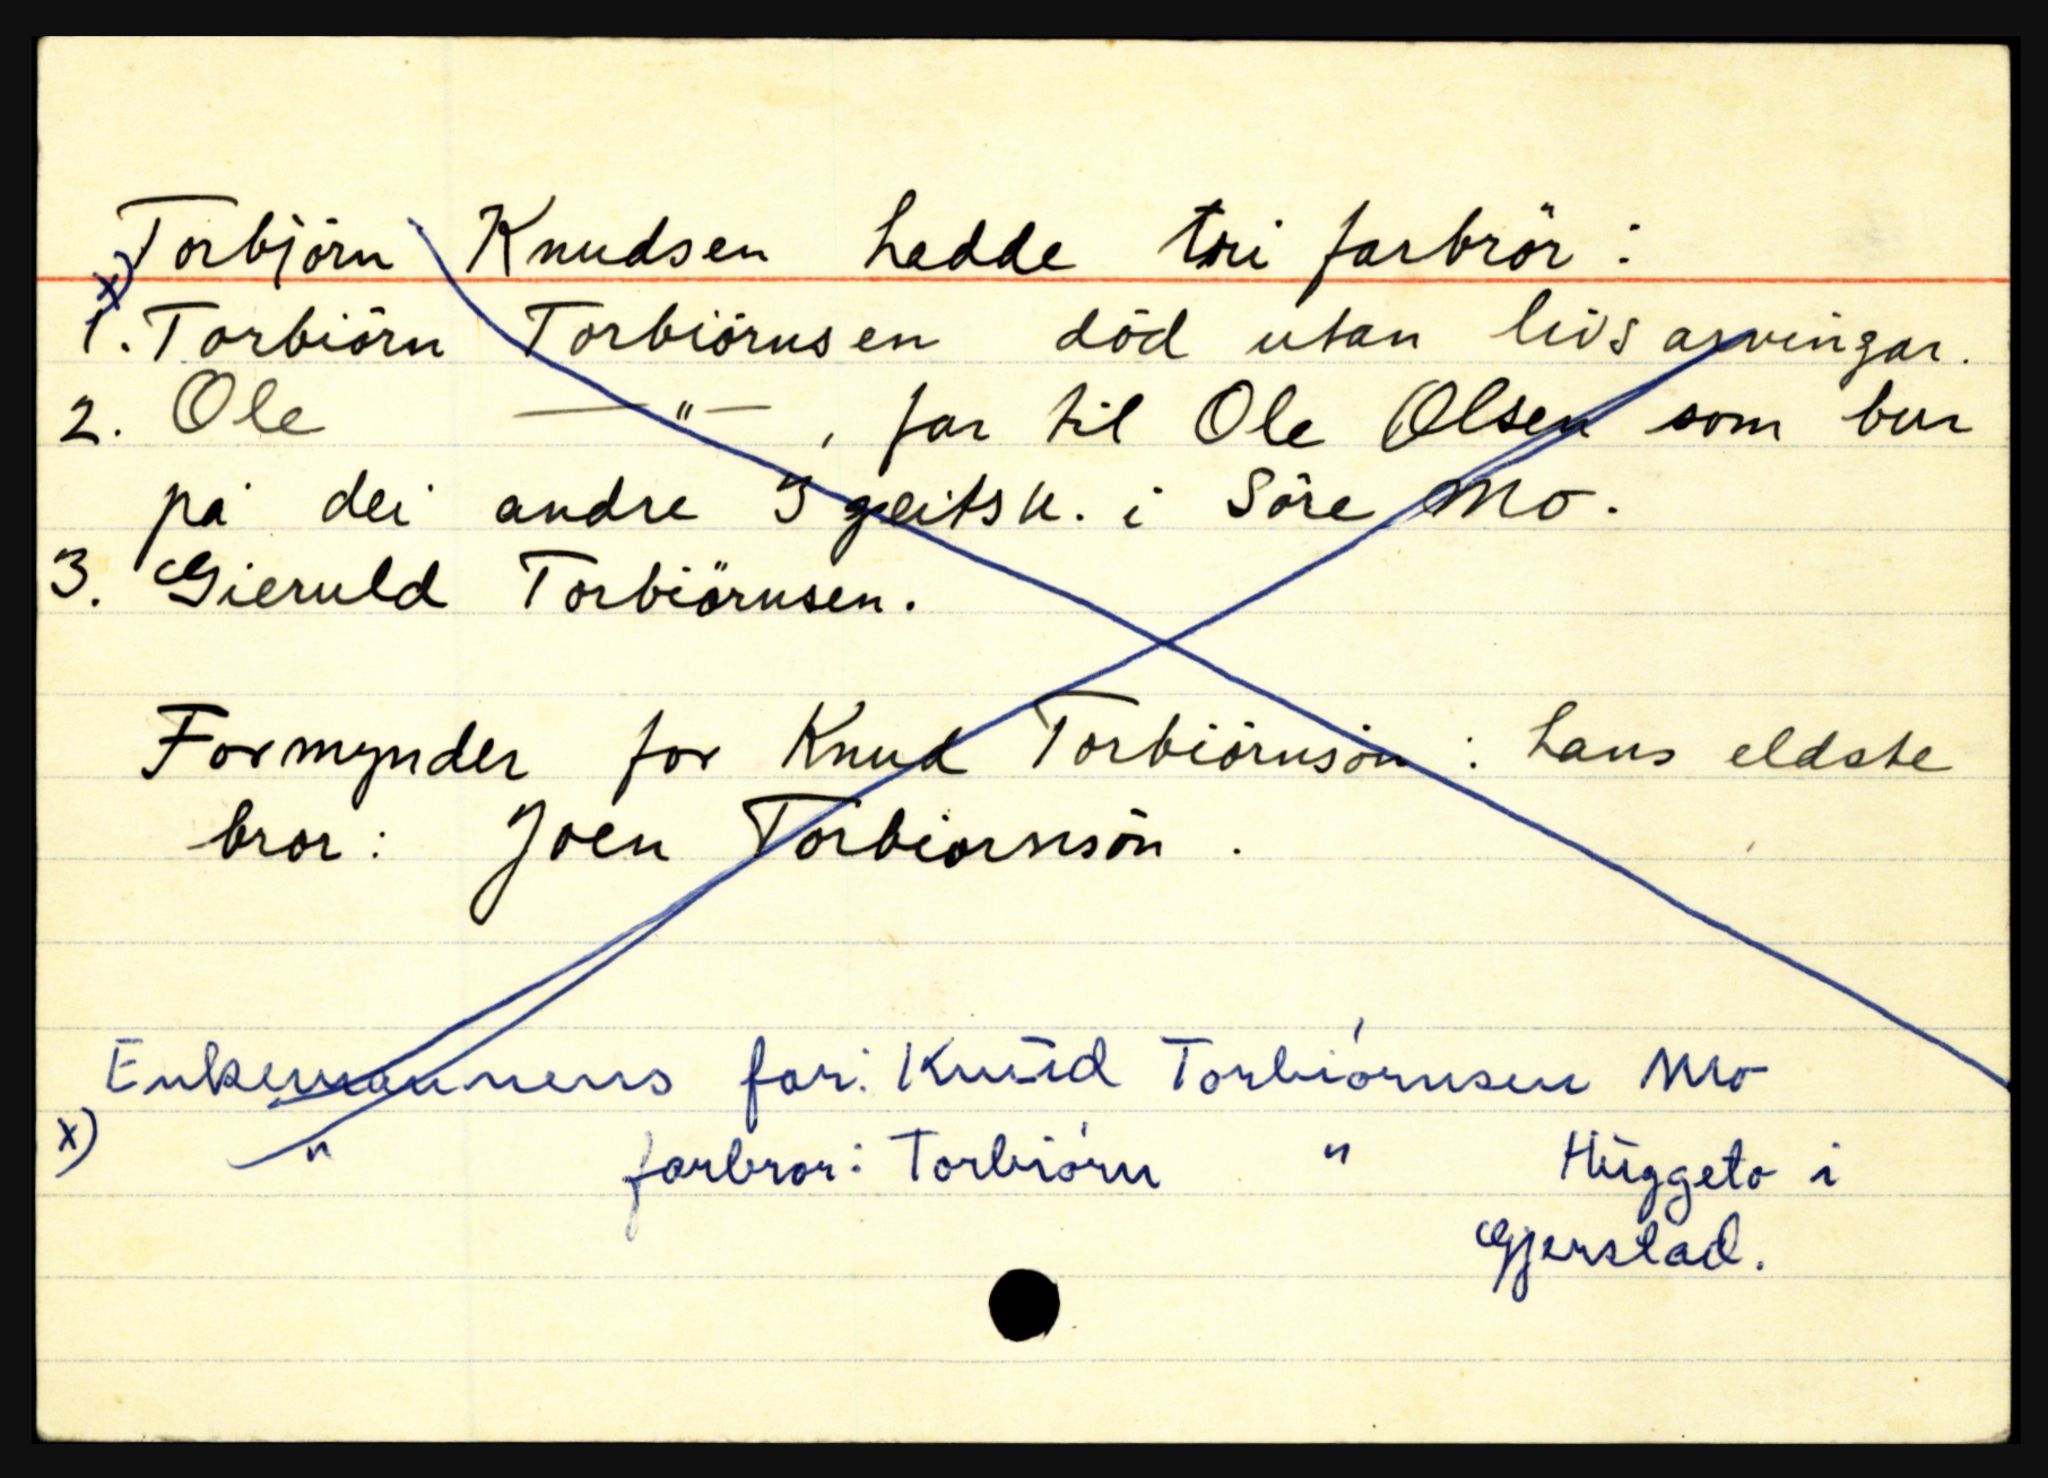 Torbjörn Knudsen hadde tri farbrör:
x)
1. Torbiörn Torbiörnsen död utan livsarvingar.
2. Ole —"—, far til Ole Olsen som bur
på dei andre 3 geitsk. i Söre Mo.
3. Gieruld Torbiörnsen.
Formynder for Knud Torbiörnsön: hans eldste
bror: Joen Torbiornsön.
Enkemannens far: Knud Torbiórnsen Mo
x) " farbror: Torbiórn " Huggeto i
Gjerstad.